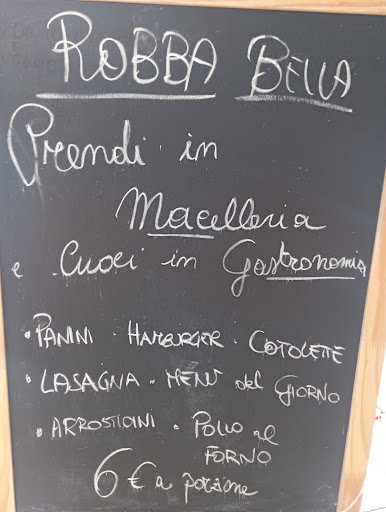 ROBBA BELLA
Prendi in
Macelleria
e Cuoci in Gastronomia
• PANINI • HAMBURGER • COTOLETTE
• LASAGNA • MENÙ del GIORNO
• ARROSTICINI • POLLO al
FORNO
6 € a porzione